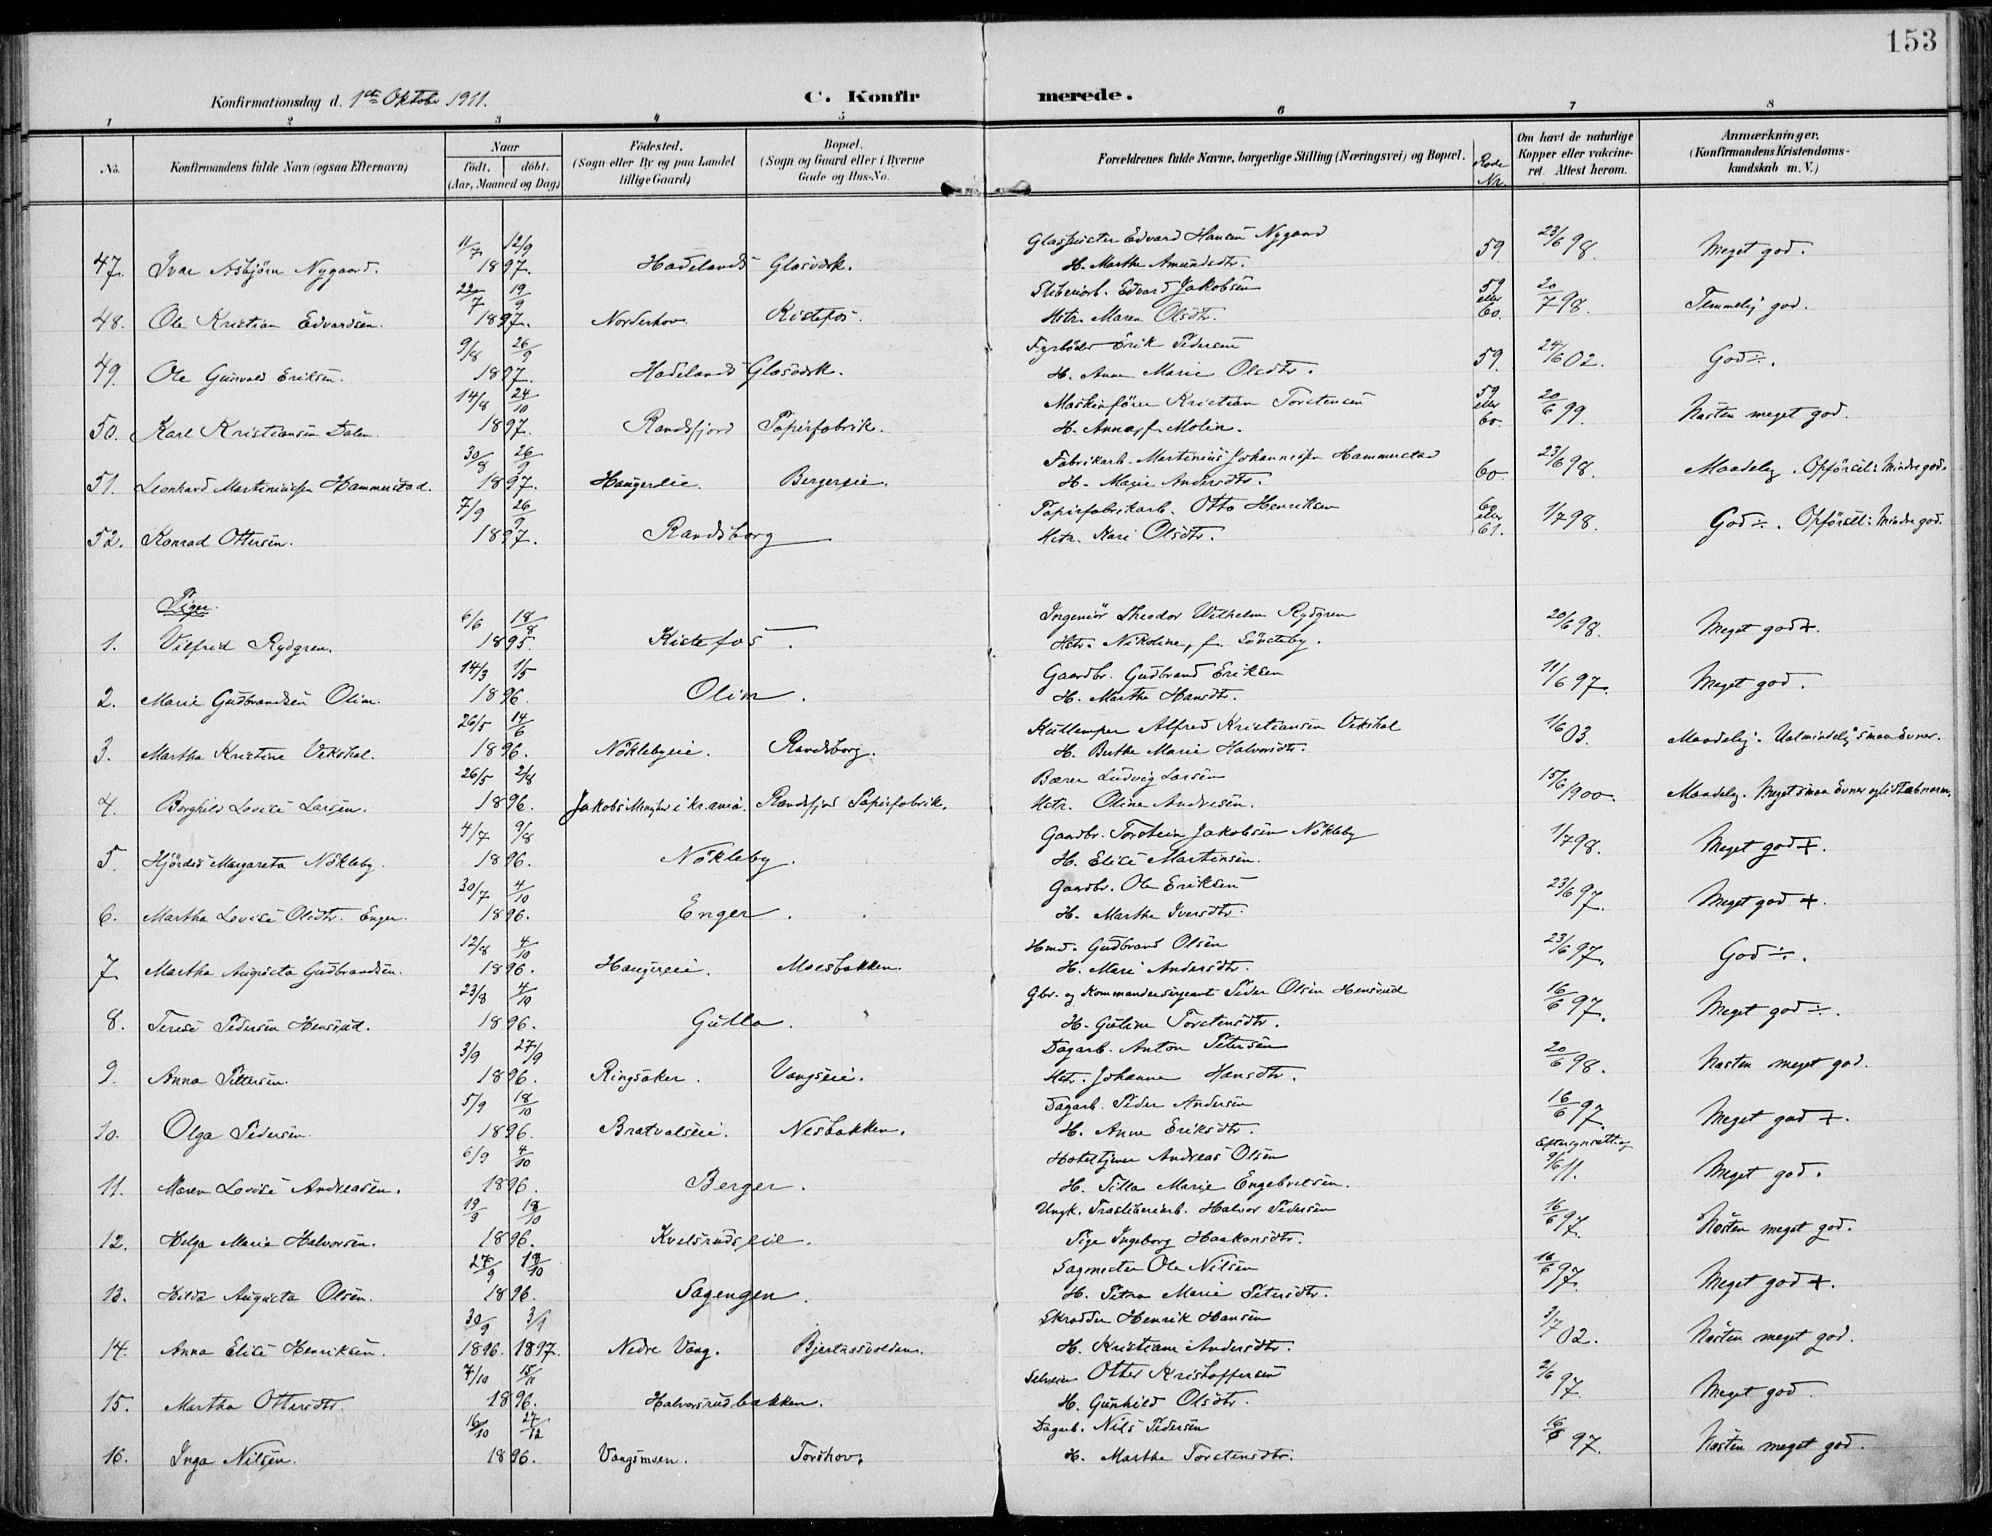 153
Konfirmationsdag d. 1ste Oktober 1911.
C. Konfirmerede.
1 2 3 4 5 6 7 8
No. Konfirmandens fulde Navn (ogsaa Efternavn) Naar født. døbt. (Aar, Maaned og Dag) Fødested. (Sogn eller By og paa Landet tillige Gaard) Bopæl. (Sogn og Gaard eller i Byerne Gade og Hus-No. Forældrenes fulde Navne, borgerlige Stilling (Næringsvei) og Bopæl. Rode Nr. Om havt de naturlige Kopper eller vakcineret. Attest herom. Anmærkninger. (Konfirmandens Kristendomskundskab m. V.)
11/7 12/9 Edvard Hansen Nygaard
47. Ivar Asbjørn Nygaard. 1897. Hadelands Glasværk. H. Marthe Amundsdtr. 59. 23/6 98. Meget god.
22/7 19/9 Sliberiarb. Edvard Jakobsen
48. Ole Kristian Edvardsen. 1897. Norderhov Kistefos. Hstr. Maren Olsdtr. 59 eller 60. 20/7 98. Temmelig god.
9/8 26/9 Fyrbøder Erik Pedersen
49. Ole Gunvald Eriksen. 1897. Hadelands Glasværk. H. Anne Marie Olsdtr. 59. 24/6 02. God ÷.
14/8 24/10 Maskinfører Kristian Torstensen
50. Karl Kristiansen Dalen. 1897. Randsfjord Papirfabrik. H. Anna, f. Molin. 59 eller 60. 20/6 99. Næsten meget god.
30/8 26/9 Fabrikarb. Martinius Johannessen Hammerstad
51. Leonhard Martiniussen Hammerstad. 1897. Haugerseie. Bergerseie. H. Marie Andersdtr. 60. 23/6 98. Maadelig. Opførsel: Mindre god.
7/9 26/9 Papirfabrikarb. Otto Henriksen
52. Konrad Ottersen. 1897. Randsborg Hstr. Kari Olsdtr. 60 eller 61. 1/7 98. God ÷. Opførsel: Mindre god.
Piger.
6/6 18/8 Ingeniør Theodor Wilhelm Rydgren
1. Vilfrid Rydgren. 1895. Kistefos. Hstr. Nikoline, f. Lønsteby. 20/6 98. Meget god +.
14/3 1/5 Gaardbr. Gudbrand Eriksen
2. Marie Gudbrandsen Olim. 1896. Olim. H. Marthe Hansdtr. 11/6 97. Meget god.
26/5 14/6 Alfred Kristiansen Vekshal
3. Martha Kristine Vekshal. 1896. Nøklebyeie. Randsborg. H. Berthe Marie Halvorsdtr. 1/6 03. Maadelig. Ualmindelig smaa Evner.
26/5 2/8 Bærer Ludvig Larsen
4. Borghild Lovise Larsen. 1896. Jakobs Menighed i Kr.ania. Randsfjord Papirfabrik. Hstr. Oline Andresen. 15/6 1900. Maadelig. Meget smaa Evner
4/7 9/8 Gaardbr. Torstein Jakobsen Nøkleby
5. Hjørdis Margareta Nøkleby. 1896. Nøkleby. H. Elise Martinsen. 1/7 98. Meget god +.
30/7 4/10 Gaardbr. Ole Eriksen
6. Martha Lovise Olsdtr. Enger. 1896. Enger. H. Marthe Iversdtr. 23/6 97. Meget god +.
12/8 4/10 Hmd. Gudbrand Olsen
7. Martha Augusta Gudbrandsen. 1896. Haugerseie. Moesbakken. H. Mari Andersdtr. 23/6 97. God ÷.
23/8 4/10 Gbr. og Kommandersergeant Peder Olsen Hensrud
8. Terese Pedersen Hensrud. 1896. Gulla. H. Guline Torstensdtr. 16/6 97. Meget god ÷.
3/9 27/9 Dagarb. Anton Petersen
9. Anna Pettersen. 1896. Ringsaker. Vangseie. Hstr. Johanne Hansdtr. 20/6 98. Næsten meget god.
5/9 18/10 Dagarb. Peder Andersen
10. Olga Pedersen. 1896. Bratvalseie. Nesbakken. H. Anne Eriksdtr. 16/6 97. Meget god +.
6/9 4/10 Andreas Olsen
11. Maren Lovise Andreasen. 1896. Berger. H. Tilla Marie Engebretsen. 9/6 11. Meget god.
19/9 18/10 Ungk. Træsliberiarb. Halvor Pedersen
12. Helga Marie Halvorsen. 1896. Kvelsrudseie. Pige Ingeborg Haakonsdtr. 16/6 97. Næsten meget god.
27/9 18/10 Sagmester Ole Nilsen
13. Hilda Augusta Olsen. 1896. Sagengen. H. Petra Marie Petersdtr. 16/6 97. Meget god +.
30/9 3/1 Skrædder Henrik Hansen
14. Anna Elise Henriksen. 1896. 1897. Nedre Vang. Bjertnæsvolden. H. Kristiane Andersdtr. 3/7 02. Næsten meget god.
7/10 15/11 Selveier Otter Kristoffersen
15. Martha Ottersdtr. 1896. Halvorsrudbakken. H. Gunhild Olsdtr. 2/6 97. Meget god.
16/10 27/12 Dagarb. Nils Pedersen
16. Inga Nilsen. 1896. Vangsmoen. Torshov. H. Marthe Torstensdtr. 16/6 97. Næsten meget god.